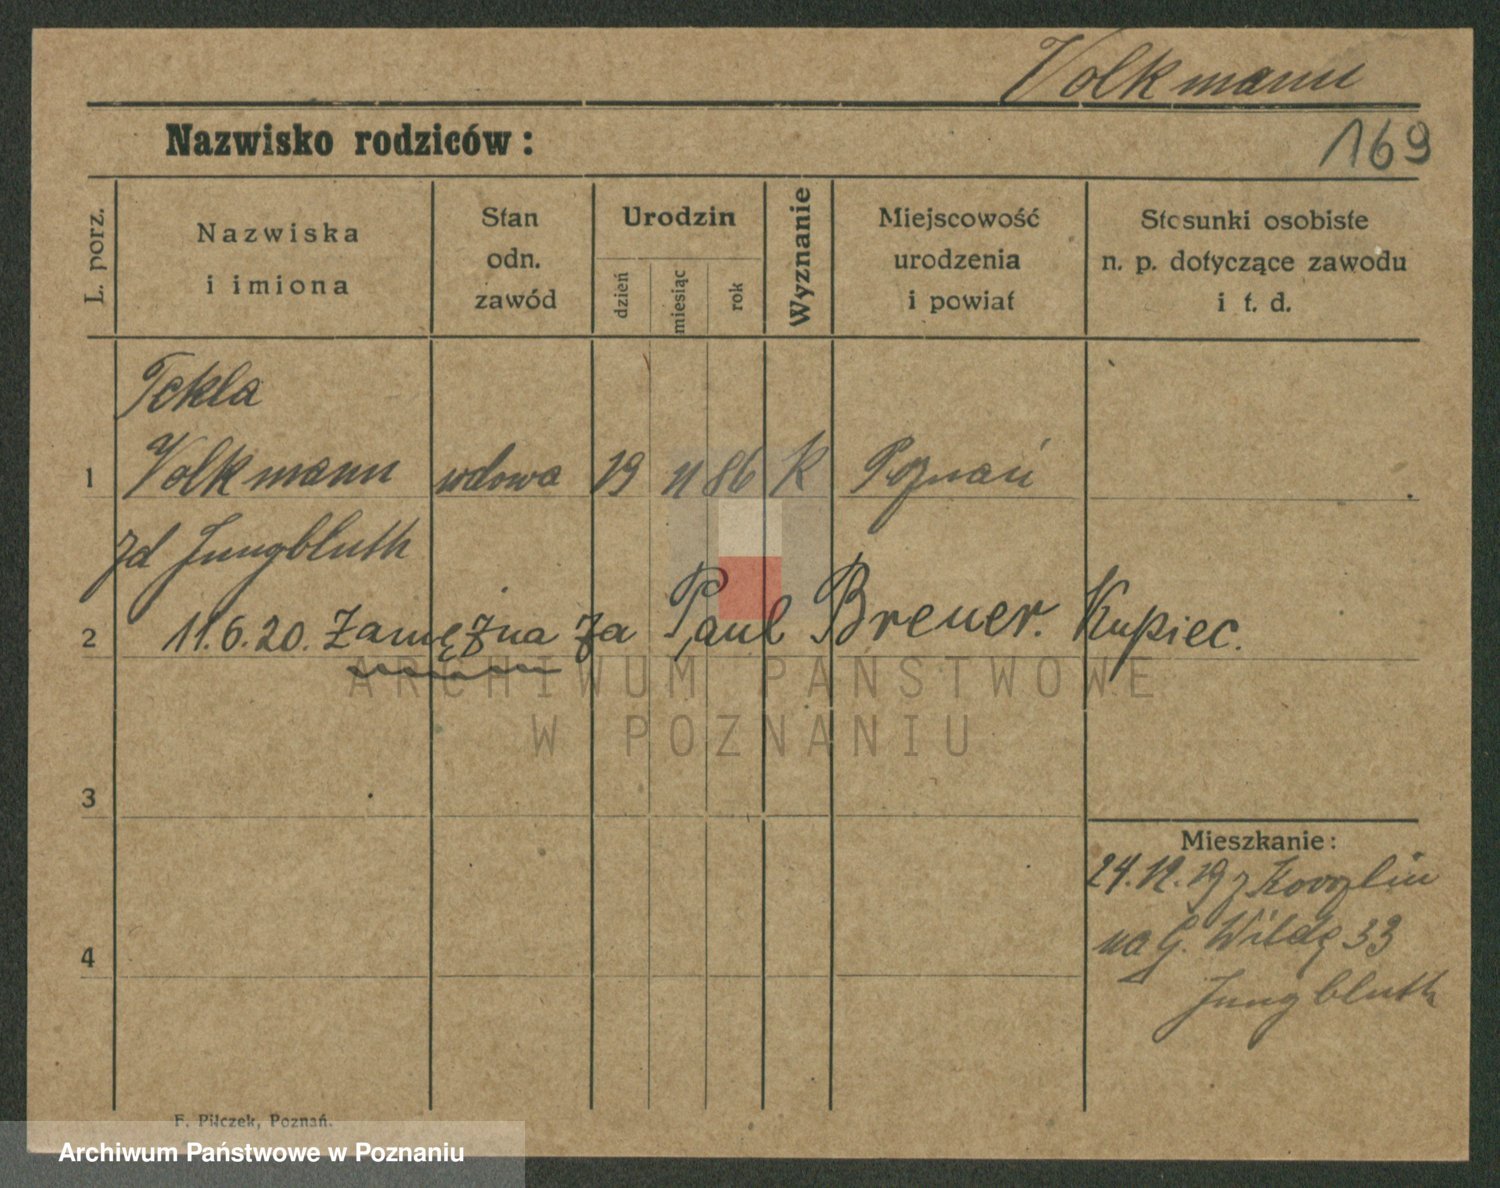 Volkmann
Nazwisko rodziców:
169
L. porz.
Nazwiska
i imiona
Stan
odn.
zawód
Urodzin
dzień
miesiąc
rok
Wyznanie
Miejscowość
urodzenia
i powiat
Stosunki osobiste
n. p. dotyczące zawodu
i t. d.
Tekla
1 Volkmann wdowa 19 11 86 K Poznań
zd Jungbluth
2 11.6.20. Zamężna za Paul Breuer. Kupiec.
ARCHIWUM PAŃSTWOWE
W POZNANIU
3
Mieszkanie:
24.12.19 z
na G. Wildę 33
4
Jungbluth
F. Pilczek, Poznań.
Archiwum Państwowe w Poznaniu